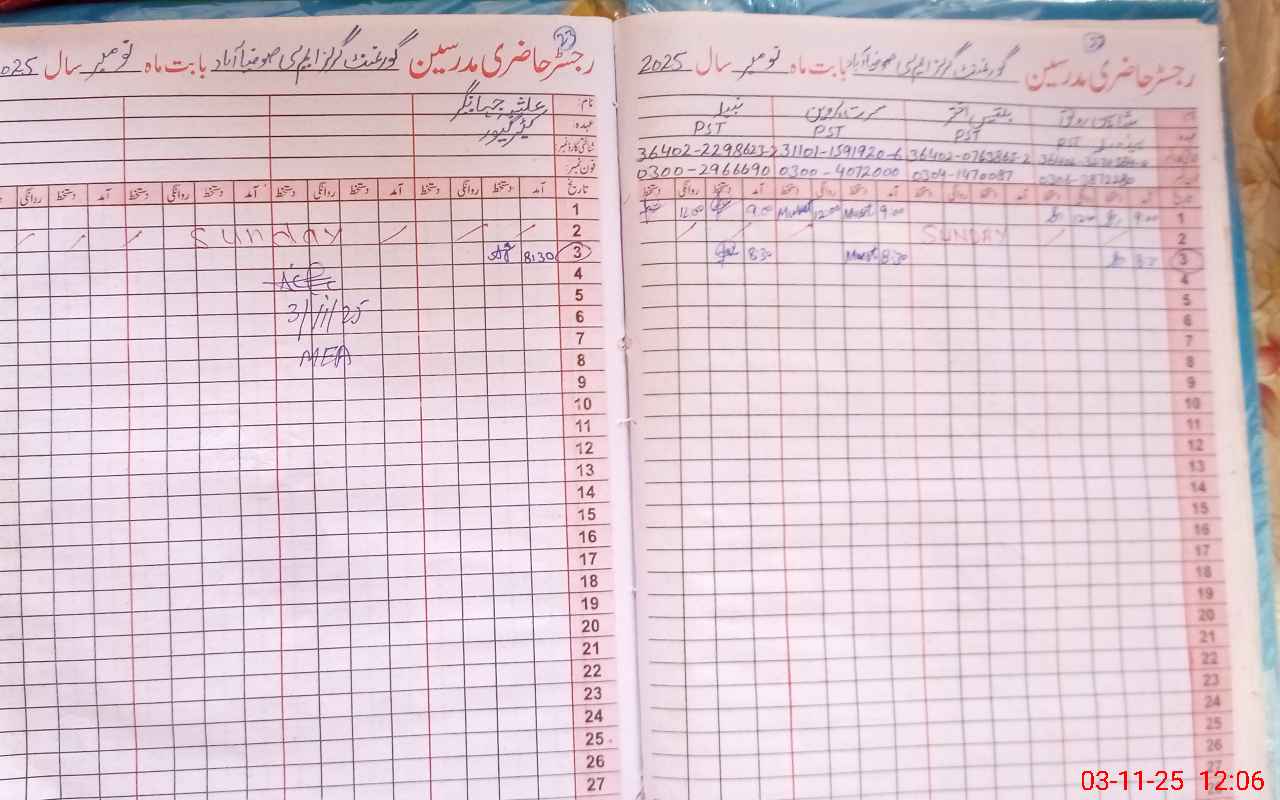 23
رجسٹر حاضری مدرسین گورنمنٹ گرلز ایم سی صوفیا آباد بابت ماہ نومبر سال 2025
نام:
عہدہ: کیئر گیور
شناختی کارڈ نمبر:
فون نمبر:
تاریخ آمد دستخط روانگی دستخط آمد دستخط روانگی دستخط آمد دستخط روانگی دستخط آمد دستخط روانگی
1
2 Sunday
3 8:30
4
5
3/11/25 6
7
MEA 8
9
10
11
12
13
14
15
16
17
18
19
20
21
22
23
24
25
26
27
رجسٹر حاضری مدرسین گورنمنٹ گرلز ایم سی صوفیا آباد بابت ماہ نومبر سال 2025
بلقیس اختر نبیلہ
PST PST PST PST
36402-0763865-2 31101-1591920-6 36402-2298623-2
0304-1470087 0300-4072000 0300-2966690
آمد دستخط روانگی دستخط آمد دستخط روانگی دستخط
1 9:00 12:00 9:00 12:00 9:00 12:00
2 SUNDAY
3 8:30 8:30 8:30
4
5
6
7
8
9
10
11
12
13
14
15
16
17
18
19
20
21
22
23
24
25
26
27
03-11-25 12:06